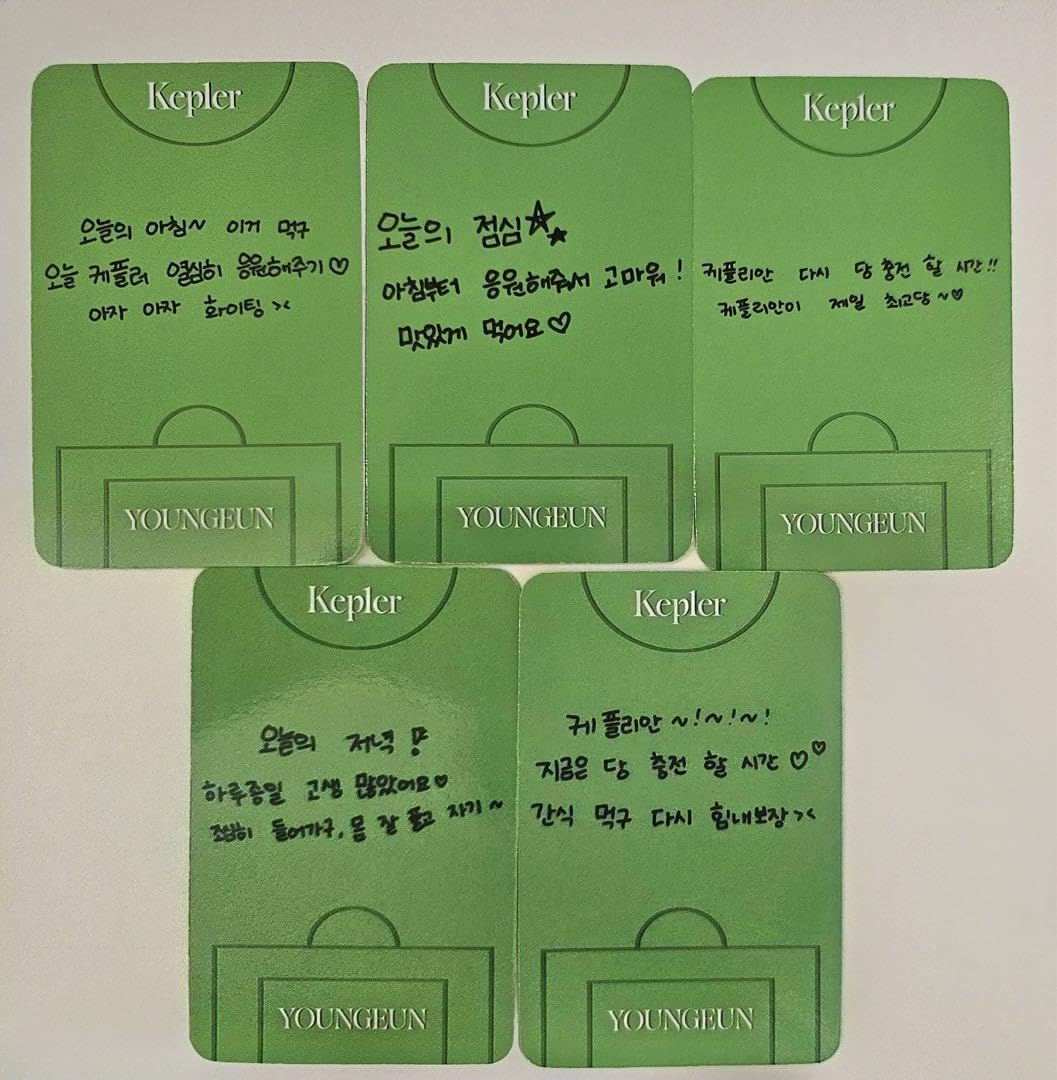 Kep1er
오늘의 아침~ 이거 먹구
오늘 케플러 열심히 응원해주기♡
아자 아자 화이팅 ><
YOUNGEUN
Kep1er
오늘의 점심☆★
아침부터 응원해줘서 고마워!
맛있게 먹어요♡
YOUNGEUN
Kep1er
케플리안 다시 당 충전 할 시간!!
케플리안이 제일 최고당~♡
YOUNGEUN
Kep1er
오늘의 저녁!
하루종일 고생 많았어요♡
조심히 들어가구, 몸 잘 풀고 자기~
YOUNGEUN
Kep1er
케플리안~!~!~!
지금은 당 충전 할 시간♡♡
간식 먹구 다시 힘내보장><
YOUNGEUN